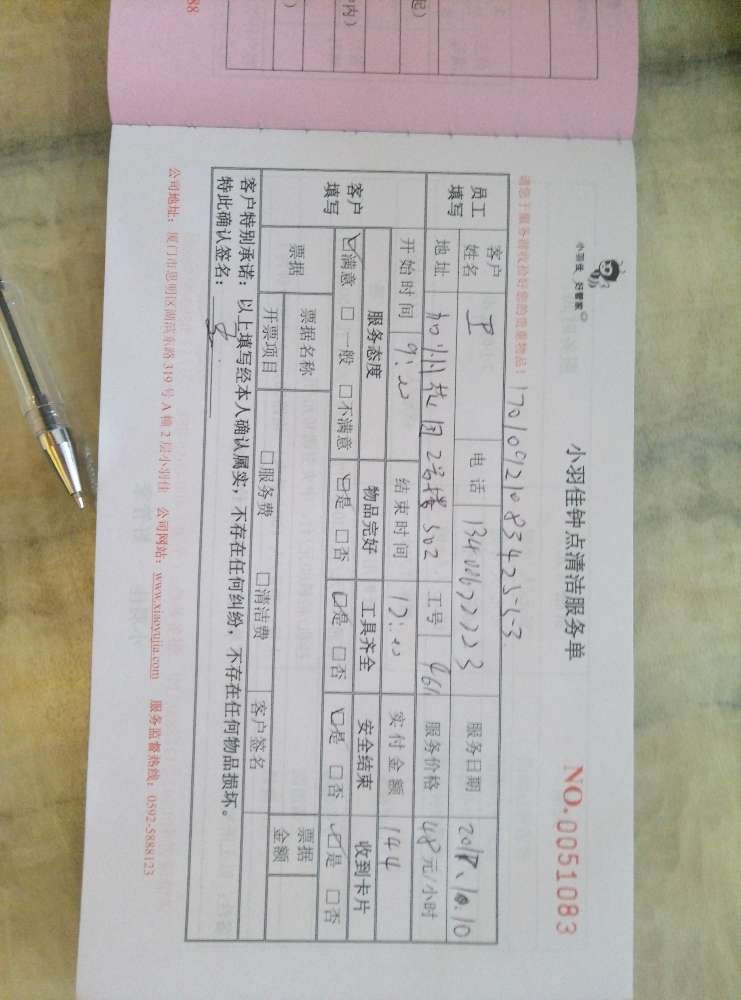 小羽佳 好管家
小羽佳钟点清洁服务单
NO.0051083
请您于服务前收捡好您的贵重物品!
17010921083425-1-3
员工填写
客户姓名 王 电话 服务日期 10.10
地址 加州花园2号楼502 工号 461 服务价格 48元/小时
开始时间 9:00 结束时间 12:00 实付金额 144
客户填写
服务态度 物品完好 工具齐全 安全结束 收到卡片
☑满意 □一般 □不满意 ☑是 □否 ☑是 □否 ☑是 □否 ☑是 □否
票据 票据名称 票据金额
开票项目 □服务费 □清洁费 客户签名
客户特别承诺:以上填写经本人确认属实,不存在任何纠纷,不存在任何物品损坏。
特此确认签名:
公司地址:厦门市思明区湖滨东路319号A幢2层小羽佳 公司网站:www.xiaoyujia.com 服务监督热线:0592-5888123
起)
内)
)
88